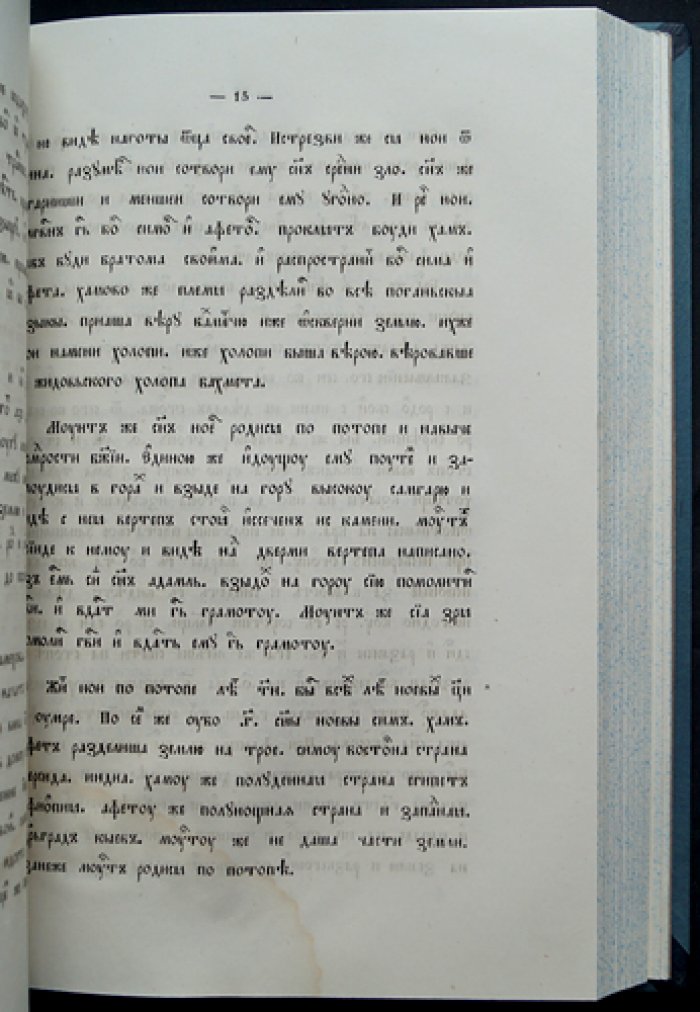 — 15 —
не видѣ наготы ѿца своеⷢ. Истрезви же сѧ нои ѿ
вина. разꙋмѣⷡ нои сотвори емꙋ сн҃ъ среⷣнии зло. сн҃ъ же
и меншии сотвори емꙋ ᲂугоⷣно. И реⷱ нои.
гь҃ боⷢ симоⷡ и҆ афетоⷡ. проклѧтъ боуди хамъ.
бꙋди братома своима. и҆ распространиⷮ боⷢ сима и҆
афета. хамово же племѧ раздѣлиⷭ во всѣ поганьскыꙗ
ꙗзыкы. приаша вѣрꙋ иже ѿскверни землю. ихже
нои намени холопи. иже холопи быша вѣрою. вѣровавше
жидовьского холопа бахмета.
Моунтъ же сн҃ъ ноеⷡ родисѧ по потопе и навыче
мⷣрости бж҃іи. Единою же и҆доущоу емꙋ поутеⷨ и за-
блоудисѧ в гораⷯ и взыде на горꙋ высокоу самгарю и
видѣ с неѧ вертепъ стоꙗ и҆ссеченъ ис камени. моунтъ
прїиде к немоу и видѣ наⷣ дверми вертепа написано.
азъ есмь сиⷻ сн҃ъ адамль. взыдоⷯ на гороу сїю помолитиⷭ
бг҃ꙋ. и҆ вдасть ми гь҃ грамотоу. Моунтъ же сїа зрѧ
помолиⷭ гв҃и и҆ вдасть емꙋ гь҃ грамотоу.
Жиⷡ нои по потопе лѣⷮ т҃н. быⷭ всѣⷯ лѣⷮ ноевыⷯ ц҃н
и оумре. По сеⷨ же оубо .г҃. сн҃ы ноевы симъ. хамъ.
афетъ разделиша землю на трое. симоу восточна страна
персида. индиа. хамоу же полꙋденнаꙗ страна египетъ
ефиопиꙗ. афетоу же полꙋнощнаꙗ страна и западнаꙗ.
цр҃ьградъ кыевъ. моунтоу же не даша части земли.
занеже моунтъ родисѧ по потопѣ.